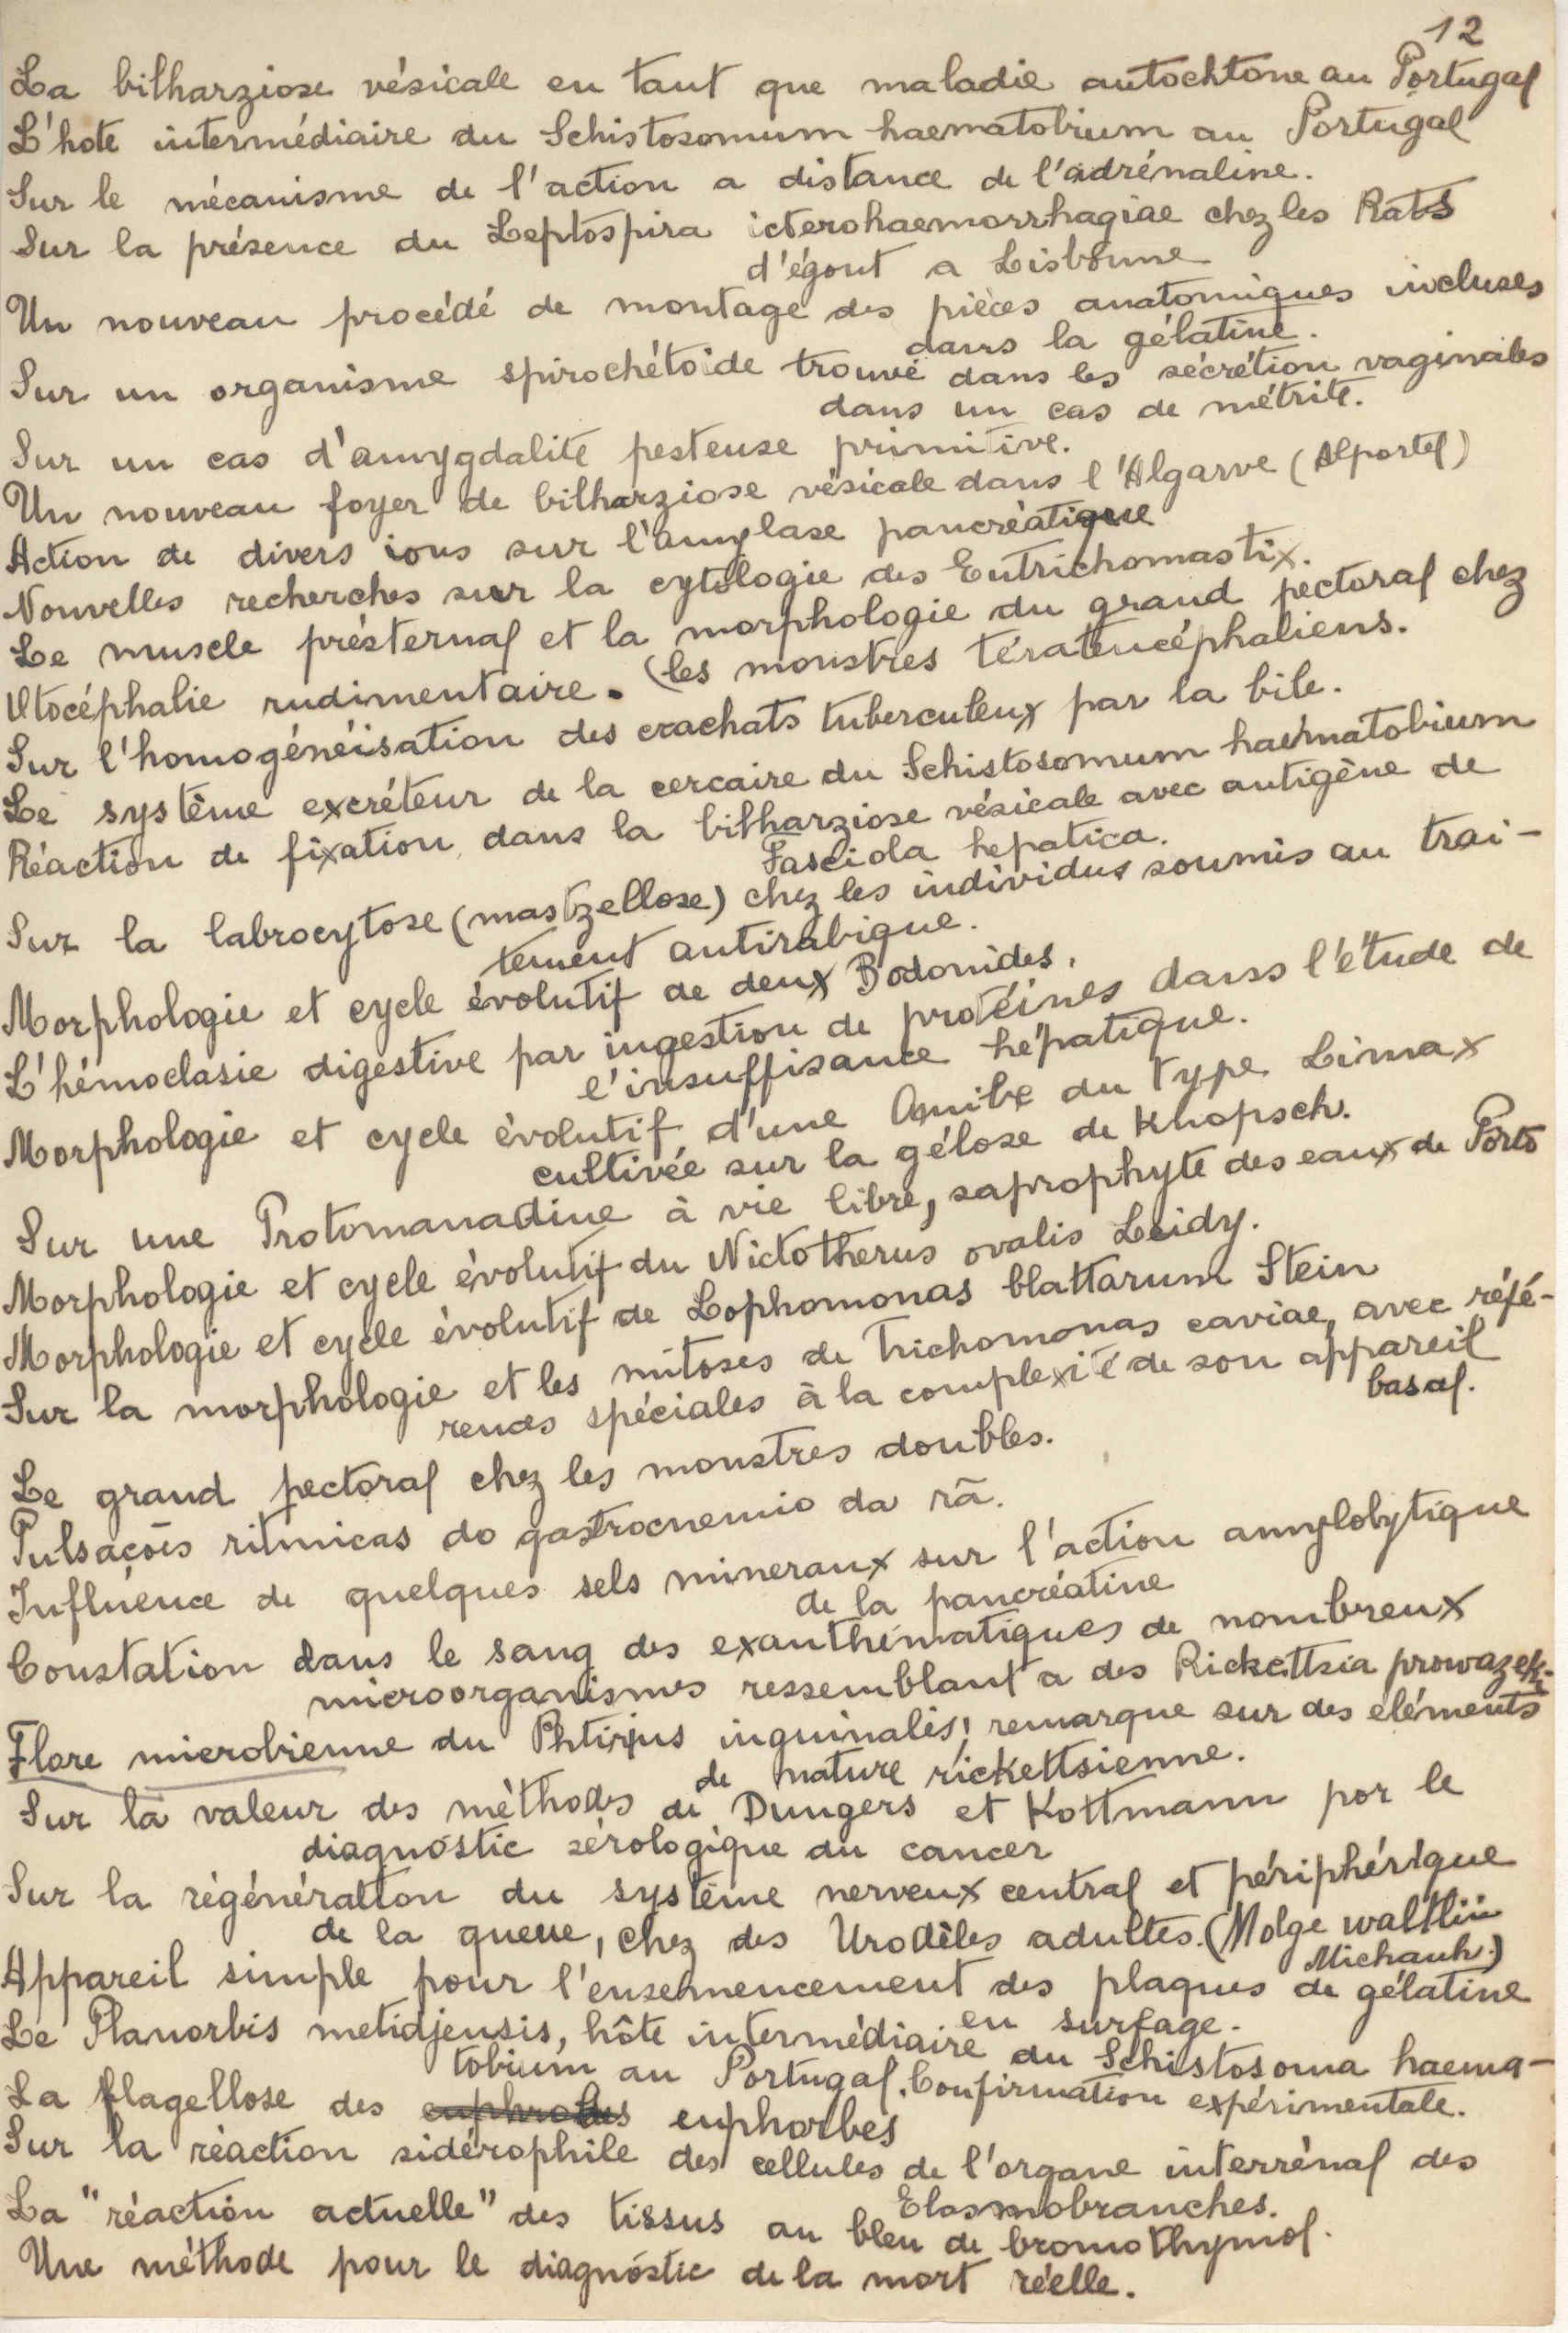 12
La bilharziose vésicale en tant que maladie autochtone au Portugal
L'hote intermédiaire du Schistosomum haematobium au Portugal
Sur le mécanisme de l'action a distance de l'adrénaline.
Sur la présence du Leptospira icterohaemorrhagiae chez les Rats
d'égout a Lisbonne
Un nouveau procédé de montage des pièces anatomiques incluses
dans la gélatine.
Sur un organisme spirochétoide trouvé dans les sécrétion vaginales
dans un cas de métrite.
Sur un cas d'amygdalite pesteuse primitive.
Un nouveau foyer de bilharziose vésicale dans l'Algarve (Alportel)
Action de divers ions sur l'amylase pancréatique
Nouvelles recherches sur la cytologie des Eutrichomastix.
Le muscle présternal et la morphologie du grand pectoral chez
(les monstres tératencéphaliens.
Otocéphalie rudimentaire.
Sur l'homogénéisation des crachats tuberculeux par la bile.
Le système excréteur de la cercaire du Schistosomum haématobium
Réaction de fixation dans la bilharziose vésicale avec antigène de
Fasciola hepatica.
Sur la labrocytose (mastzellose) chez les individus soumis au trai-
tement antirabique.
Morphologie et cycle évolutif de deux Bodonides.
L'hémoclasie digestive par ingestion de protéines dans l'étude de
l'insuffisance hépatique.
Morphologie et cycle évolutif d'une Amibe du type Limax
cultivée sur la gélose de Knopsch.
Sur une Protomanadine à vie libre, saprophyte des eaux de Porto
Morphologie et cycle évolutif du Nictotherus ovalis Leidy.
Morphologie et cycle évolutif de Lophomonas blattarum Stein
Sur la morphologie et les mitoses de Trichomonas caviae, avec réfé-
rences spéciales à la complexité de son appareil
basal.
Le grand pectoral chez les monstres doubles.
Pulsações ritmicas do gastrocnemio da rã.
Influence de quelques sels mineraux sur l'action amylolytique
de la pancréatine
Constation dans le sang des exanthématiques de nombreux
microorganismes ressemblant a des Rickettsia prowazeki.
Flore microbienne du Phtirius inguinalis; remarque sur des eléments
de nature rickettsienne.
Sur la valeur des méthodes de Dungers et Kottmann por le
diagnóstic sérologique du cancer
Sur la régénération du système nerveux central et périphérique
de la queue, chez des Urodèles adultes. (Molge waltlii
Michauh.)
Appareil simple pour l'ensemencement des plaques de gélatine
en surfage.
Le Planorbis metidjensis, hôte intermédiaire du Schistosoma haema-
tobium au Portugal. Confirmation expérimentale.
La flagellose des euphorbes
Sur la réaction sidérophile des cellules de l'organe interrénal des
Elasmobranches.
La "réaction actuelle" des tissus au bleu de bromothymol.
Une méthode pour le diagnóstic de la mort réelle.